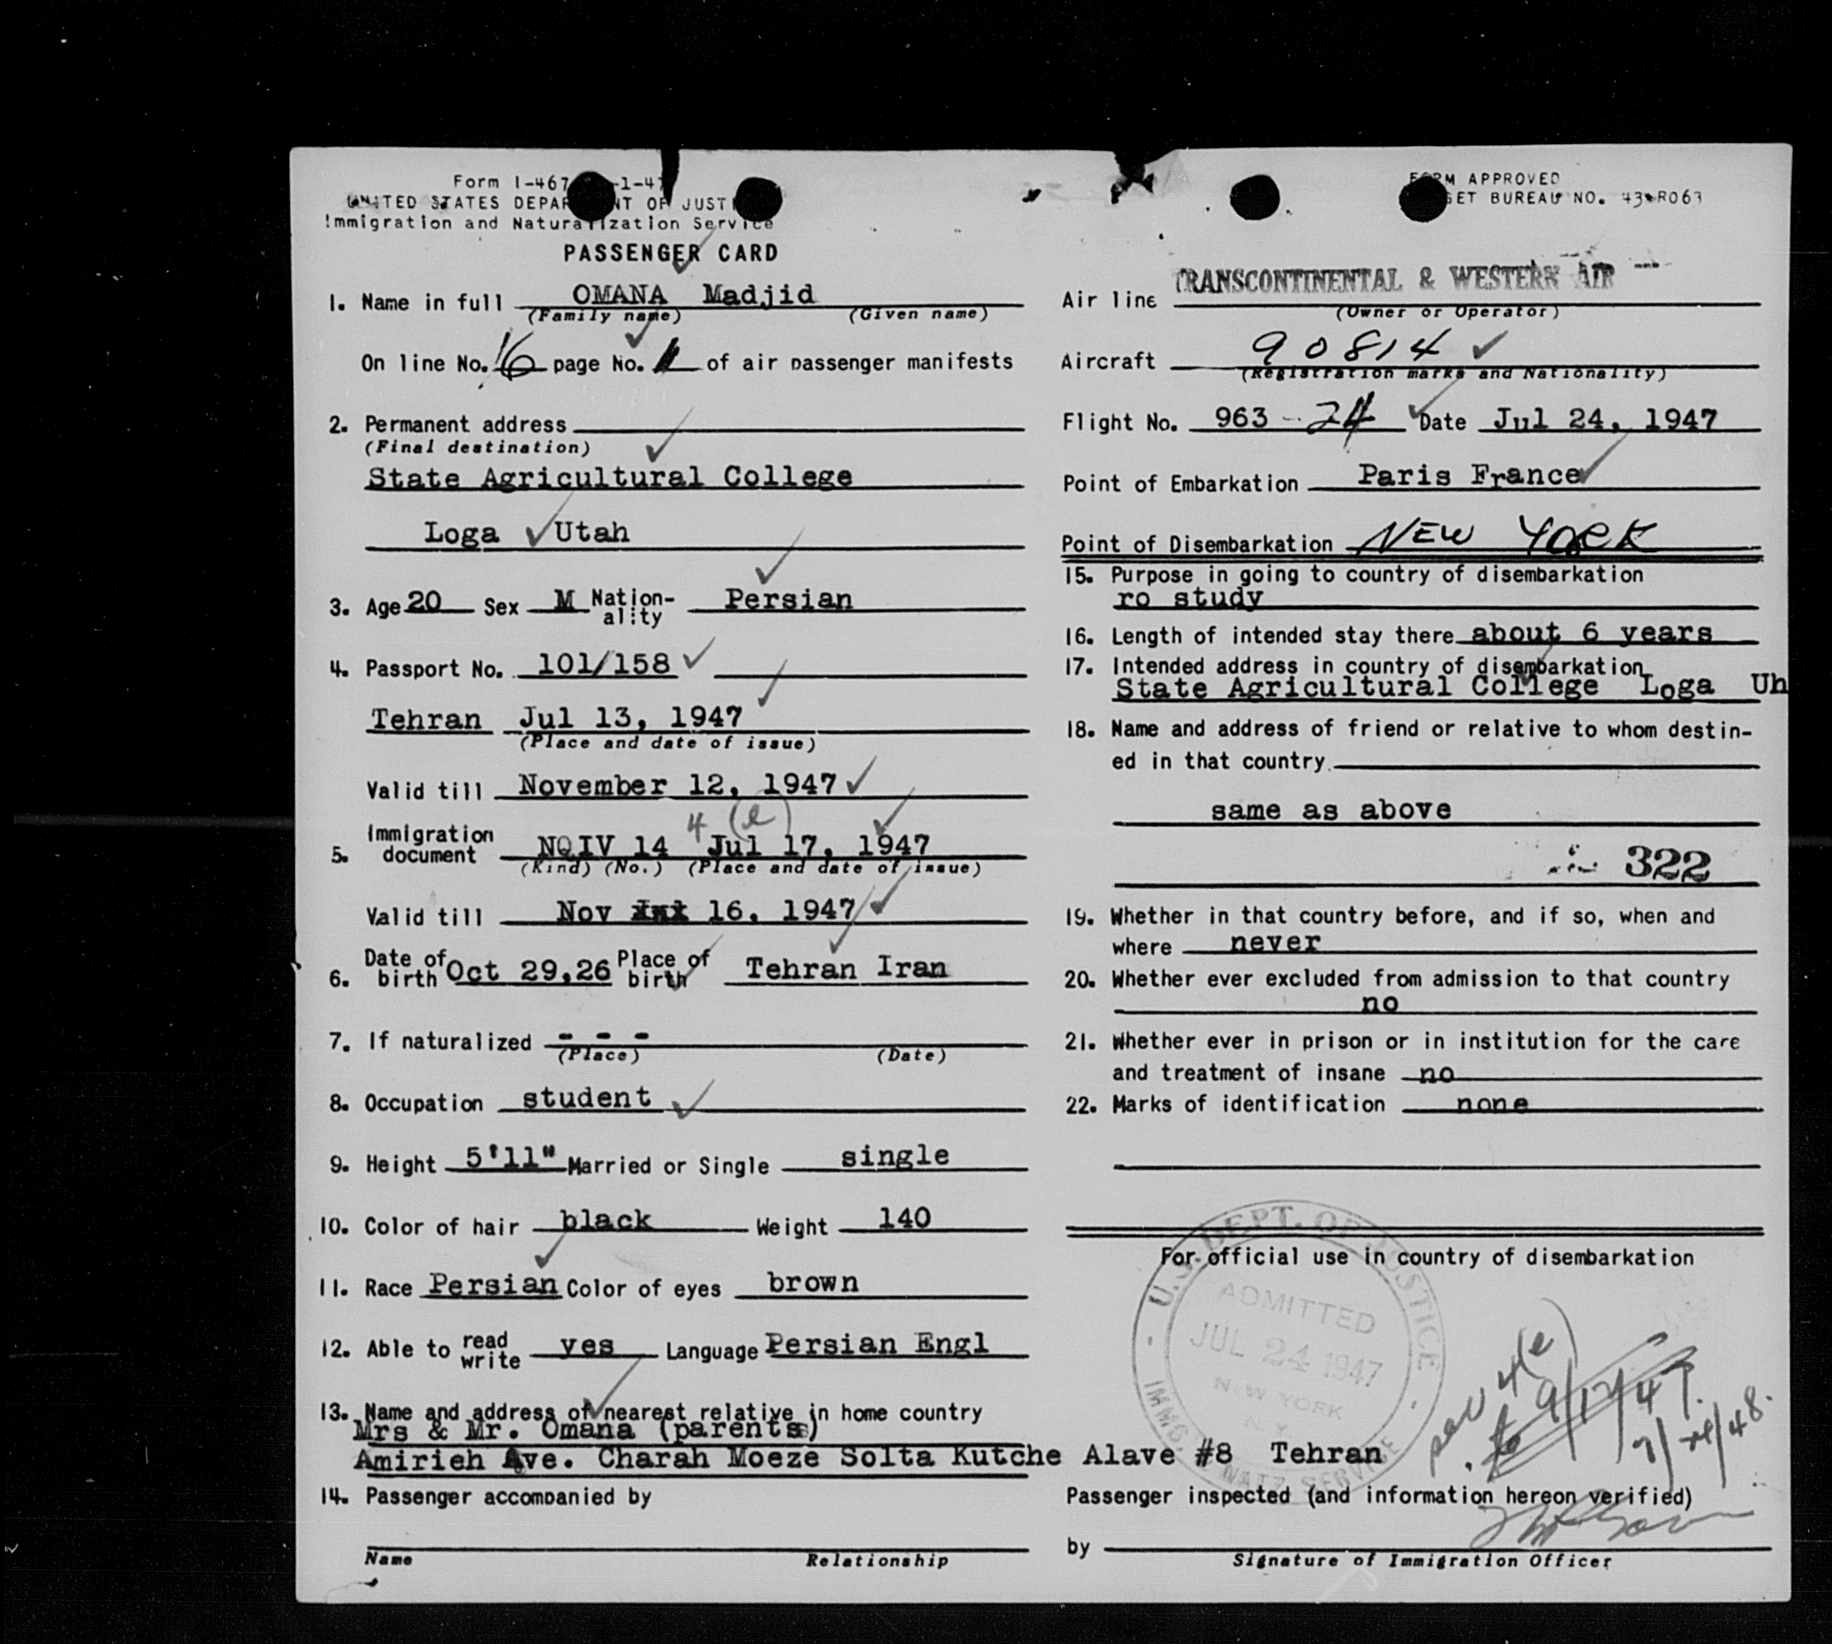 Form I-467 -1-47
UNITED STATES DEPARTMENT OF JUSTICE
Immigration and Naturalization Service
PASSENGER CARD
1. Name in full OMANA Madjid
(Family name) (Given name)
On line No. 16 page No. 1 of air passenger manifests
2. Permanent address
(Final destination)
State Agricultural College
Loga Utah
3. Age 20 Sex M Nation-ality Persian
4. Passport No. 101/158
Tehran Jul 13, 1947
(Place and date of issue)
Valid till November 12, 1947
4 (e)
5. Immigration document NQIV 14 Jul 17, 1947
(Kind) (No.) (Place and date of issue)
Valid till Nov 16, 1947
6. Date of birth Oct 29,26 Place of birth Tehran Iran
7. If naturalized - - -
(Place) (Date)
8. Occupation student
9. Height 5'11" Married or Single single
10. Color of hair black Weight 140
11. Race Persian Color of eyes brown
12. Able to read write yes Language Persian Engl
13. Name and address of nearest relative in home country
Mrs & Mr. Omana (parents)
Amirieh Ave. Charah Moeze Solta Kutche Alave #8 Tehran
14. Passenger accompanied by
Name Relationship
FORM APPROVED
BUDGET BUREAU NO. 43-R063
TRANSCONTINENTAL & WESTERN AIR
Air line
(Owner or Operator)
Aircraft 90814
(Registration marks and Nationality)
Flight No. 963 - 24 Date Jul 24, 1947
Point of Embarkation Paris France
Point of Disembarkation NEW YORK
15. Purpose in going to country of disembarkation
ro study
16. Length of intended stay there about 6 years
17. Intended address in country of disembarkation
State Agricultural College Loga Uh
18. Name and address of friend or relative to whom destin-
ed in that country
same as above
322
19. Whether in that country before, and if so, when and
where never
20. Whether ever excluded from admission to that country
no
21. Whether ever in prison or in institution for the care
and treatment of insane no
22. Marks of identification none
For official use in country of disembarkation
U.S. DEPT. OF JUSTICE
ADMITTED
JUL 24 1947
NEW YORK
N.Y.
IMMG. & NATZ. SERVICE
4(e)
to 9/12/47
7/24/48.
Passenger inspected (and information hereon verified)
by
Signature of Immigration Officer